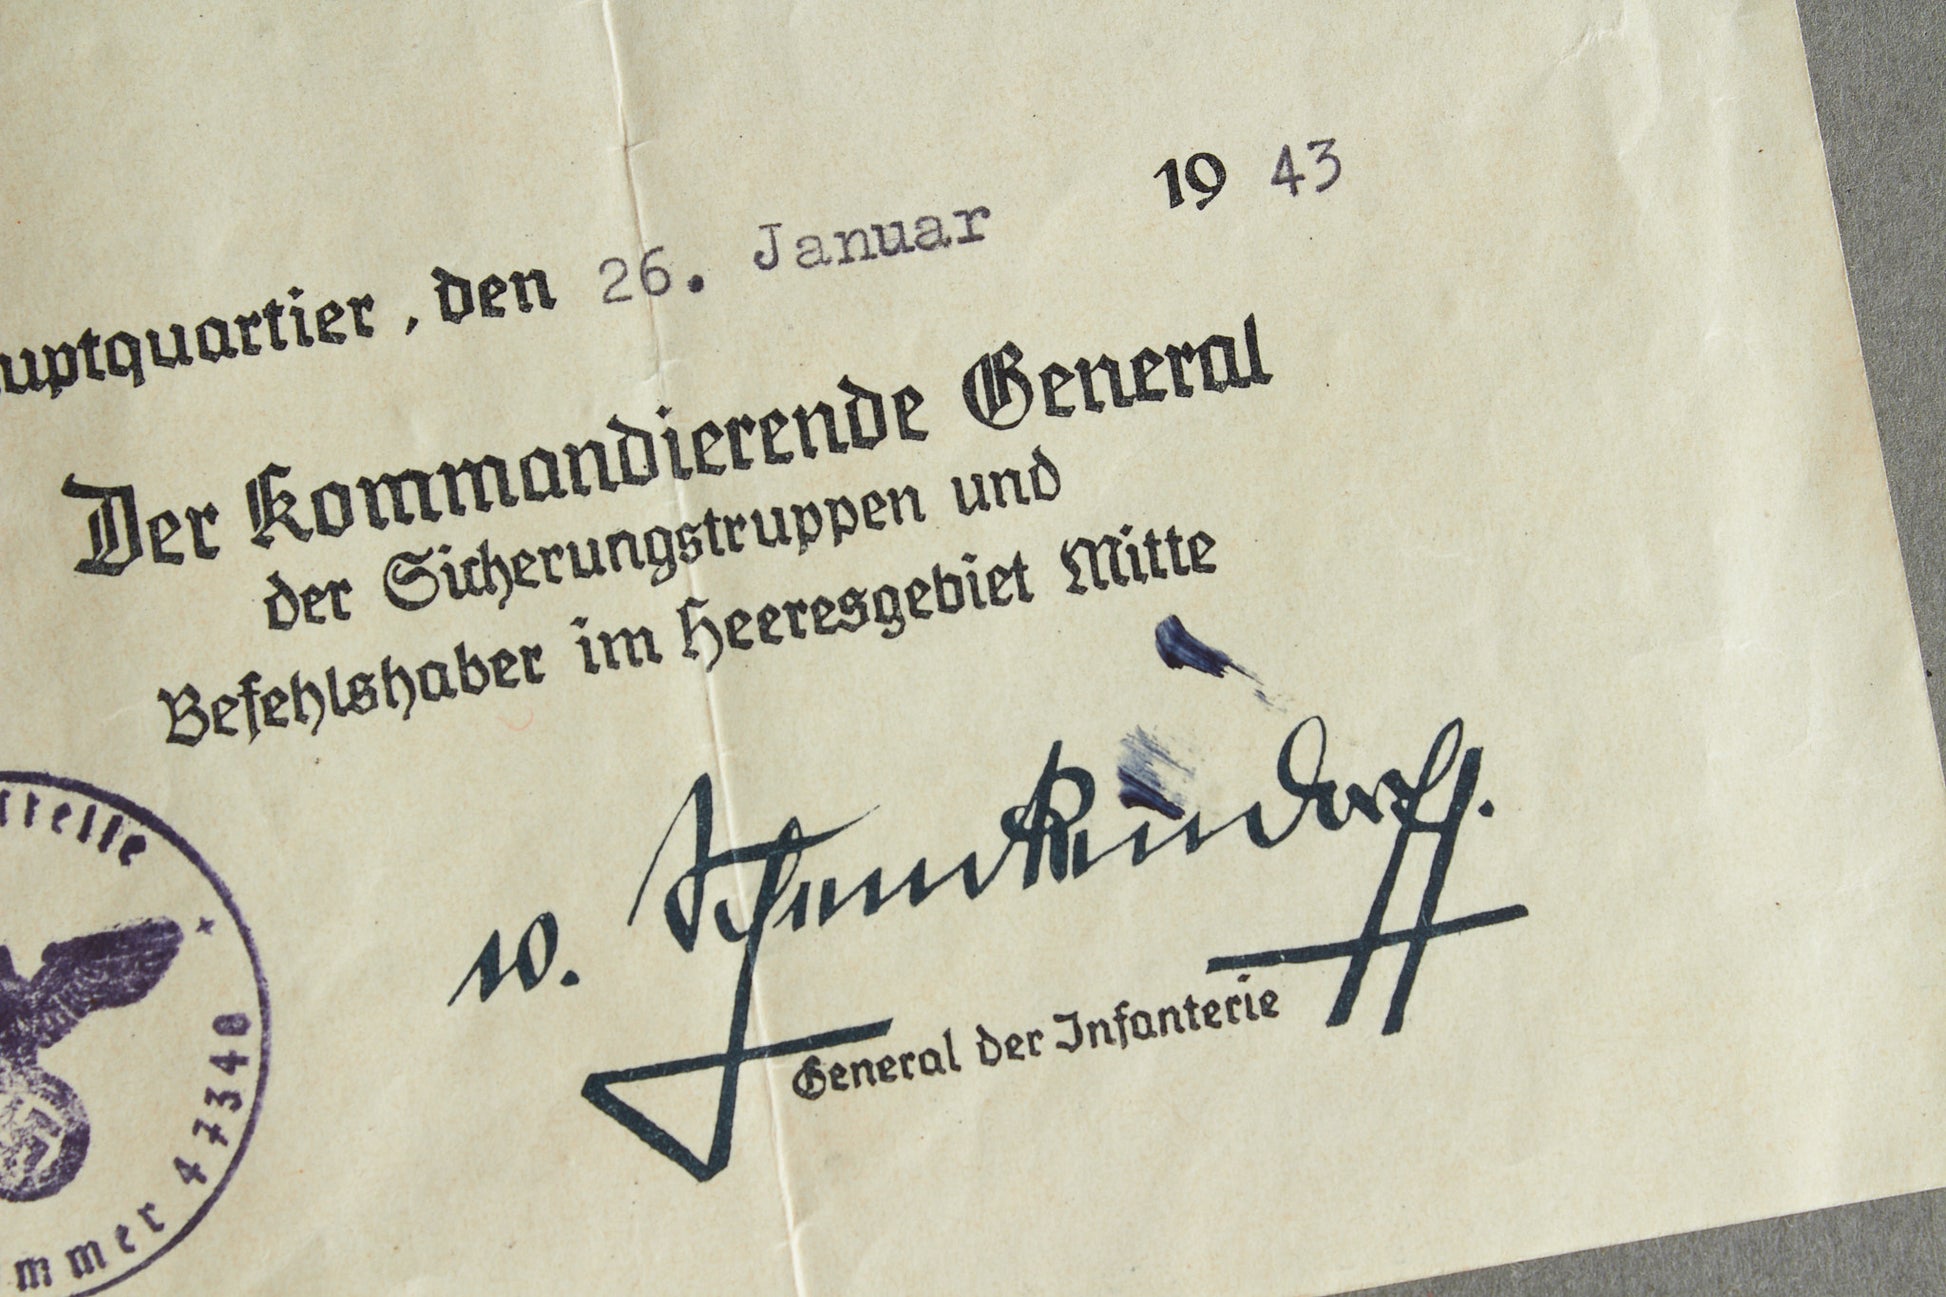 uptquartier, den 26. Januar 19 43
Der Kommandierende General
der Sicherungstruppen und
Befehlshaber im Heeresgebiet Mitte
w. Schenckendorff.
General der Infanterie
mmer 47340